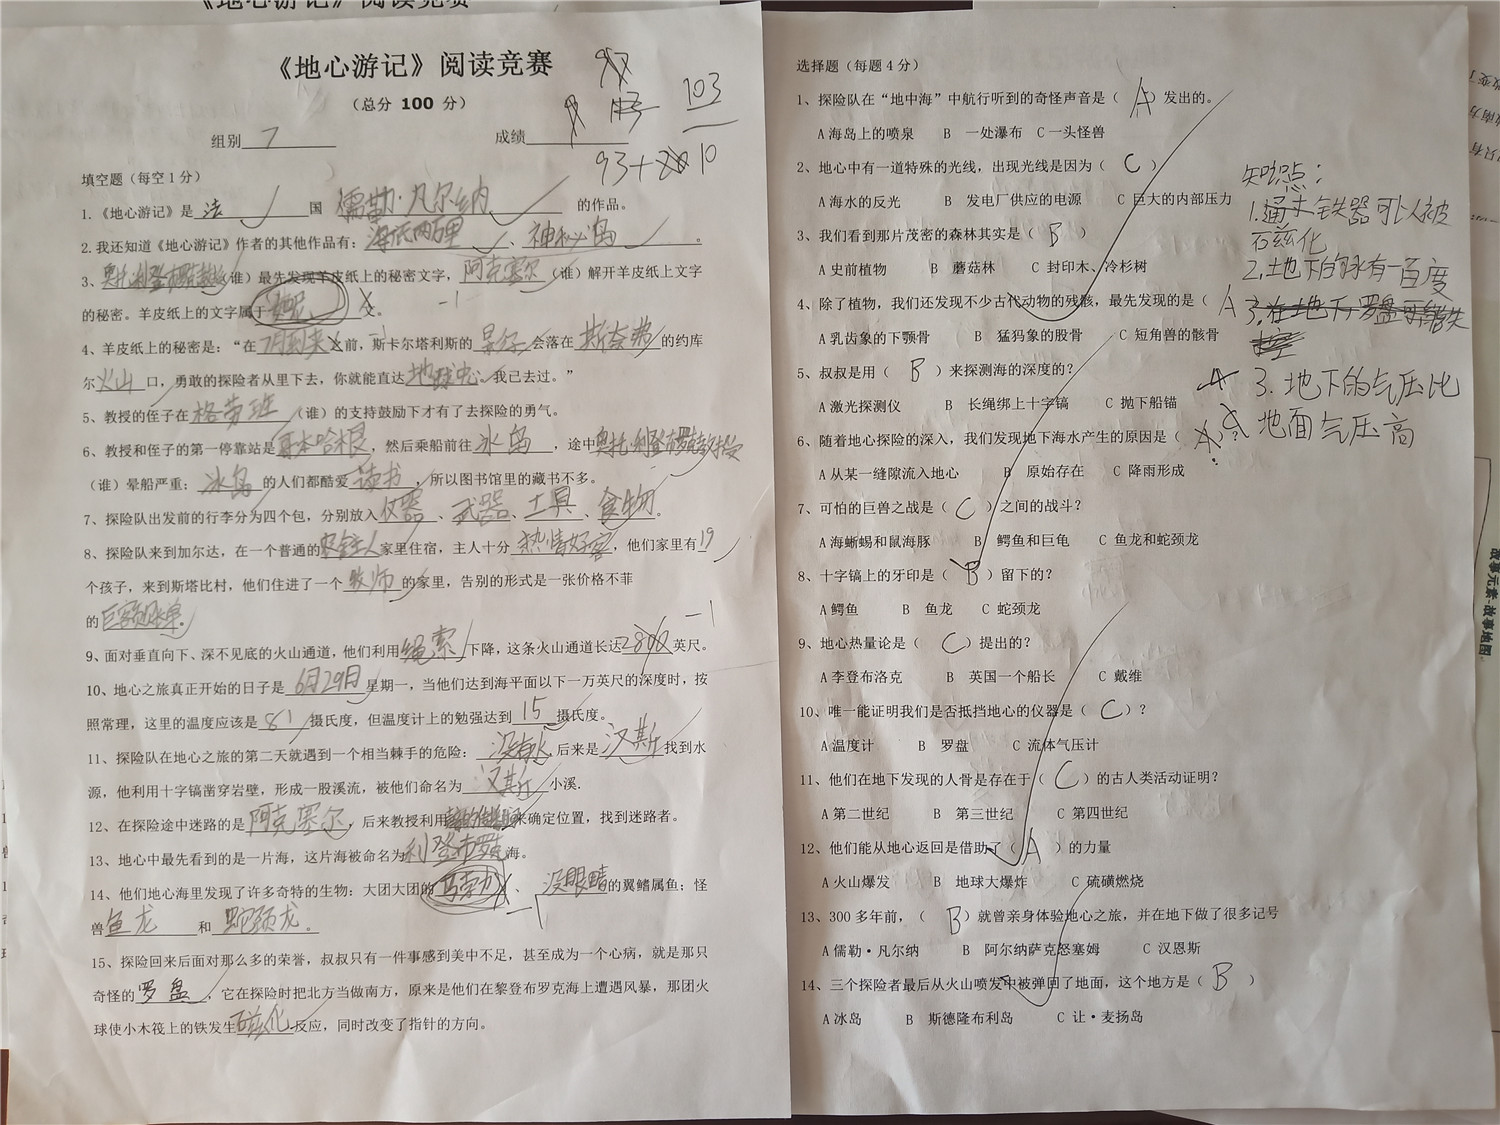 《地心游记》阅读竞赛
《地心游记》阅读竞赛
（总分 100 分）
103
93+10
组别 7 成绩
填空题（每空1分）
1.《地心游记》是 法 国 儒勒·凡尔纳 的作品。
2.我还知道《地心游记》作者的其他作品有：海底两万里、神秘岛。
3、奥托·利登布罗克教授（谁）最先发现羊皮纸上的秘密文字，阿克塞尔（谁）解开羊皮纸上文字
的秘密。羊皮纸上的文字属于 文。 -1
4、羊皮纸上的秘密是：“在 之前，斯卡尔塔利斯的 影子 会落在 斯奈弗 的约库
尔 火山 口，勇敢的探险者从里下去，你就能直达 地球中心。我已去过。”
5、教授的侄子在 格劳班 （谁）的支持鼓励下才有了去探险的勇气。
6、教授和侄子的第一停靠站是 哥本哈根，然后乘船前往 冰岛，途中 奥托·利登布罗克教授
（谁）晕船严重；冰岛 的人们都酷爱 读书，所以图书馆里的藏书不多。
7、探险队出发前的行李分为四个包，分别放入 仪器、武器、工具、食物。
8、探险队来到加尔达，在一个普通的 家里住宿，主人十分 热情好客，他们家里有 19
个孩子，来到斯塔比村，他们住进了一个 牧师 的家里，告别的形式是一张价格不菲
的 巨额账单。
-1
9、面对垂直向下、深不见底的火山通道，他们利用 绳索 下降，这条火山通道长达 2800 英尺。
10、地心之旅真正开始的日子是 6月29日 星期一，当他们达到海平面以下一万英尺的深度时，按
照常理，这里的温度应该是 81 摄氏度，但温度计上的勉强达到 15 摄氏度。
11、探险队在地心之旅的第二天就遇到一个相当棘手的危险： 没有水 后来是 汉斯 找到水
源，他利用十字镐凿穿岩壁，形成一股溪流，被他们命名为 汉斯 小溪.
12、在探险途中迷路的是 阿克塞尔，后来教授利用 来确定位置，找到迷路者。
13、地心中最先看到的是一片海，这片海被命名为 利登布罗克 海。
14、他们地心海里发现了许多奇特的生物：大团大团的 、没眼睛 的翼鳍属鱼；怪
-1
兽 鱼龙 和 蛇颈龙。
15、探险回来后面对那么多的荣誉，叔叔只有一件事感到美中不足，甚至成为一个心病，就是那只
奇怪的 罗盘，它在探险时把北方当做南方，原来是他们在黎登布罗克海上遭遇风暴，那团火
球使小木筏上的铁发生 磁化 反应，同时改变了指针的方向。
选择题（每题4分）
1、探险队在“地中海”中航行听到的奇怪声音是（ A ）发出的。
A海岛上的喷泉 B 一处瀑布 C一头怪兽
2、地心中有一道特殊的光线，出现光线是因为（ C ）
A海水的反光 B 发电厂供应的电源 C巨大的内部压力
3、我们看到那片茂密的森林其实是（ B ）
A史前植物 B 蘑菇林 C 封印木、冷杉树
4、除了植物，我们还发现不少古代动物的残骸，最先发现的是（ A
A乳齿象的下颚骨 B 猛犸象的股骨 C 短角兽的骸骨
5、叔叔是用（ B ）来探测海的深度的？
A激光探测仪 B 长绳绑上十字镐 C 抛下船锚
6、随着地心探险的深入，我们发现地下海水产生的原因是（ A
A从某一缝隙流入地心 B 原始存在 C 降雨形成
7、可怕的巨兽之战是（ C ）之间的战斗？
A海蜥蜴和鼠海豚 B 鳄鱼和巨龟 C 鱼龙和蛇颈龙
8、十字镐上的牙印是（ B ）留下的？
A鳄鱼 B 鱼龙 C 蛇颈龙
9、地心热量论是（ C ）提出的？
A李登布洛克 B 英国一个船长 C 戴维
10、唯一能证明我们是否抵挡地心的仪器是（ C ）？
A温度计 B 罗盘 C 流体气压计
11、他们在地下发现的人骨是存在于（ C ）的古人类活动证明？
A第二世纪 B 第三世纪 C 第四世纪
12、他们能从地心返回是借助了（ A ）的力量
A火山爆发 B 地球大爆炸 C 硫磺燃烧
13、300多年前，（ B ）就曾亲身体验地心之旅，并在地下做了很多记号
A儒勒·凡尔纳 B 阿尔纳萨克怒塞姆 C 汉恩斯
14、三个探险者最后从火山喷发中被弹回了地面，这个地方是（ B ）
A冰岛 B 斯德隆布利岛 C 让·麦扬岛
知识点：
1.通木铁器可以被
石兹化
2.土地下的脉有一百度
3.在地下,罗盘可能失
3.地下的气压比
地面气压高
故事元素·故事地图